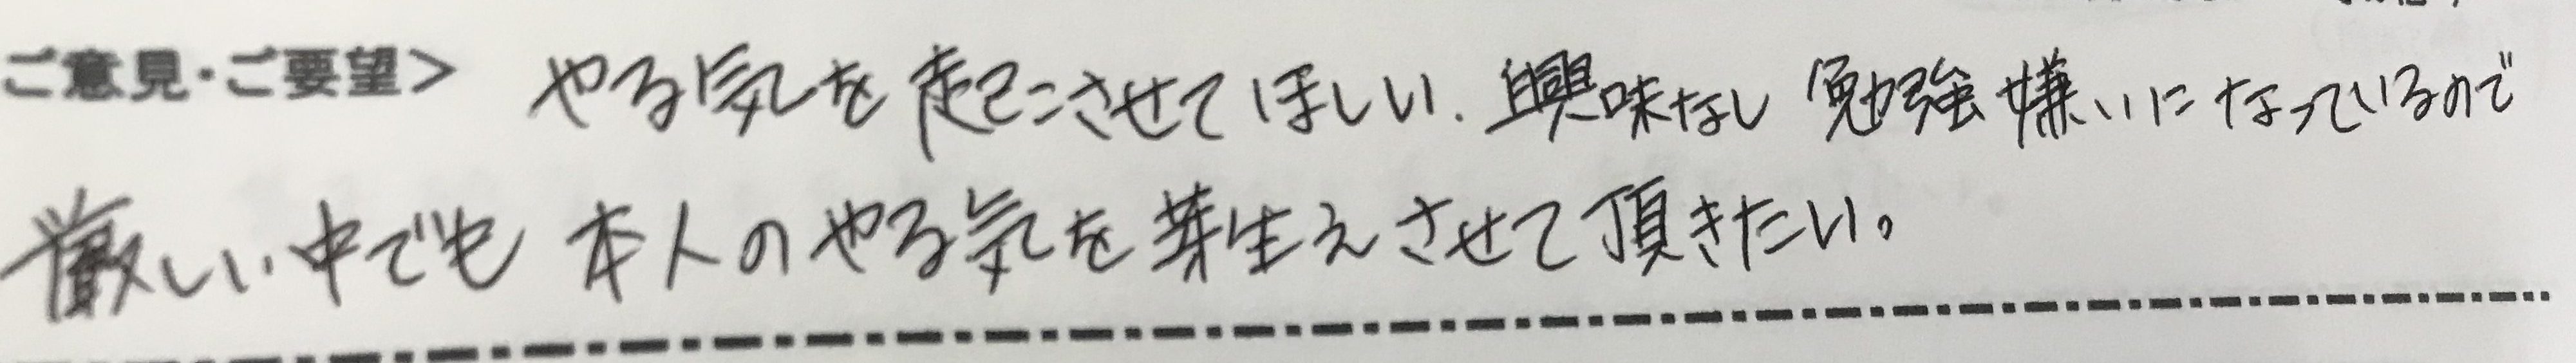 ご意見・ご要望> やる気を起こさせてほしい. 興味なし 勉強嫌いになっているので
厳しい中でも 本人のやる気を芽生えさせて頂きたい。